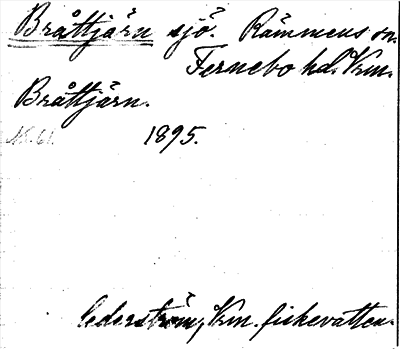 Bråttjärn sjö. Rämmens sn.
Fernebo hd. Vrm.
Bråttjärn.
1895.
Cederström, Vrm. fiskevatten.